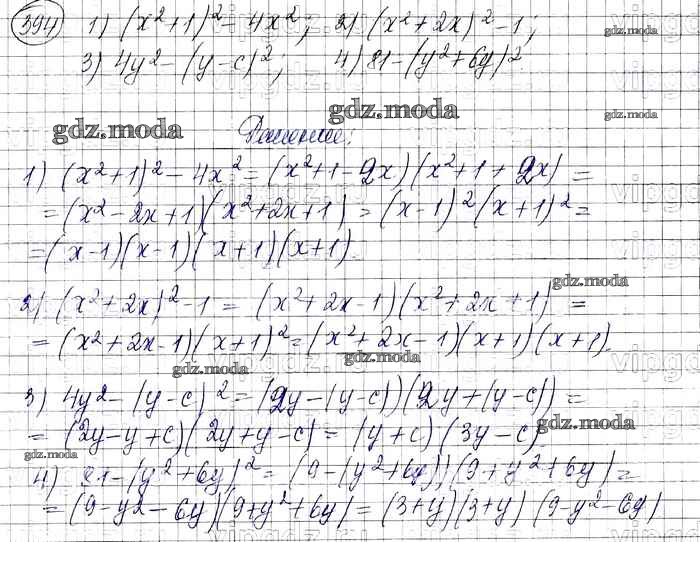 394) 1) (x²+1)² - 4x²; 2) (x²+2x)² - 1;
3) 4y² - (y-c)²; 4) 81 - (y²+6y)²
gdz.moda
gdz.moda
gdz.moda
gdz.moda
Решение:
1) (x²+1)² - 4x² = (x²+1-2x)(x²+1+2x) =
= (x²-2x+1)(x²+2x+1) = (x-1)²(x+1)² =
= (x-1)(x-1)(x+1)(x+1)
gdz.moda
2) (x²+2x)²-1 = (x²+2x-1)(x²+2x+1) =
= (x²+2x-1)(x+1)² = (x²+2x-1)(x+1)(x+1)
gdz.moda
gdz.moda
3) 4y² - (y-c)² = (2y-(y-c))(2y+(y-c)) =
= (2y-y+c)(2y+y-c) = (y+c)(3y-c)
gdz.moda
gdz.moda
4) 81-(y²+6y)² = (9-(y²+6y))(9+y²+6y) =
= (9-y²-6y)(9+y²+6y) = (3+y)(3+y)(9-y²-6y)